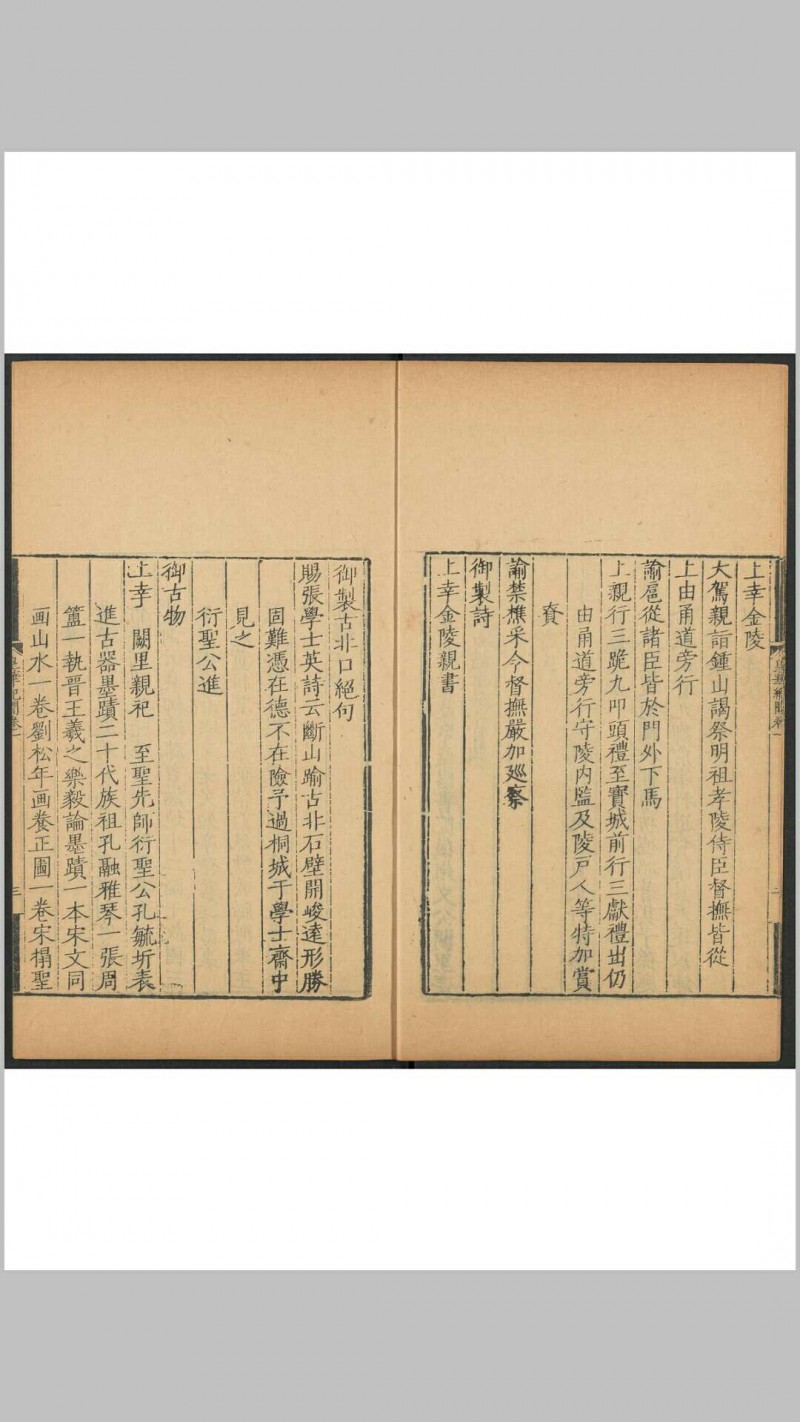 上幸金陵
大駕親詣鍾山謁祭明祖孝陵侍臣督撫皆從
上由甬道旁行
諭扈從諸臣皆於門外下馬
上親行三跪九叩頭禮至寶城前行三獻禮出仍
由甬道旁行守陵内監及陵戸人等特加賞
賚
諭禁樵采令督撫嚴加廵察
御製詩
上幸金陵親書
御製古北口絕句
賜張學士英詩云斷山踰古北石壁開峻遠形勝
固難憑在德不在險予過桐城于學士齋中
見之
衍聖公進
御古物
上幸 闕里親祀 至聖先師衍聖公孔毓圻表
進古器墨蹟二十代族祖孔融雅琴一張周
簠一執晋王羲之樂毅論墨蹟一本宋文同
画山水一卷劉松年画養正圖一卷宋搨聖
三